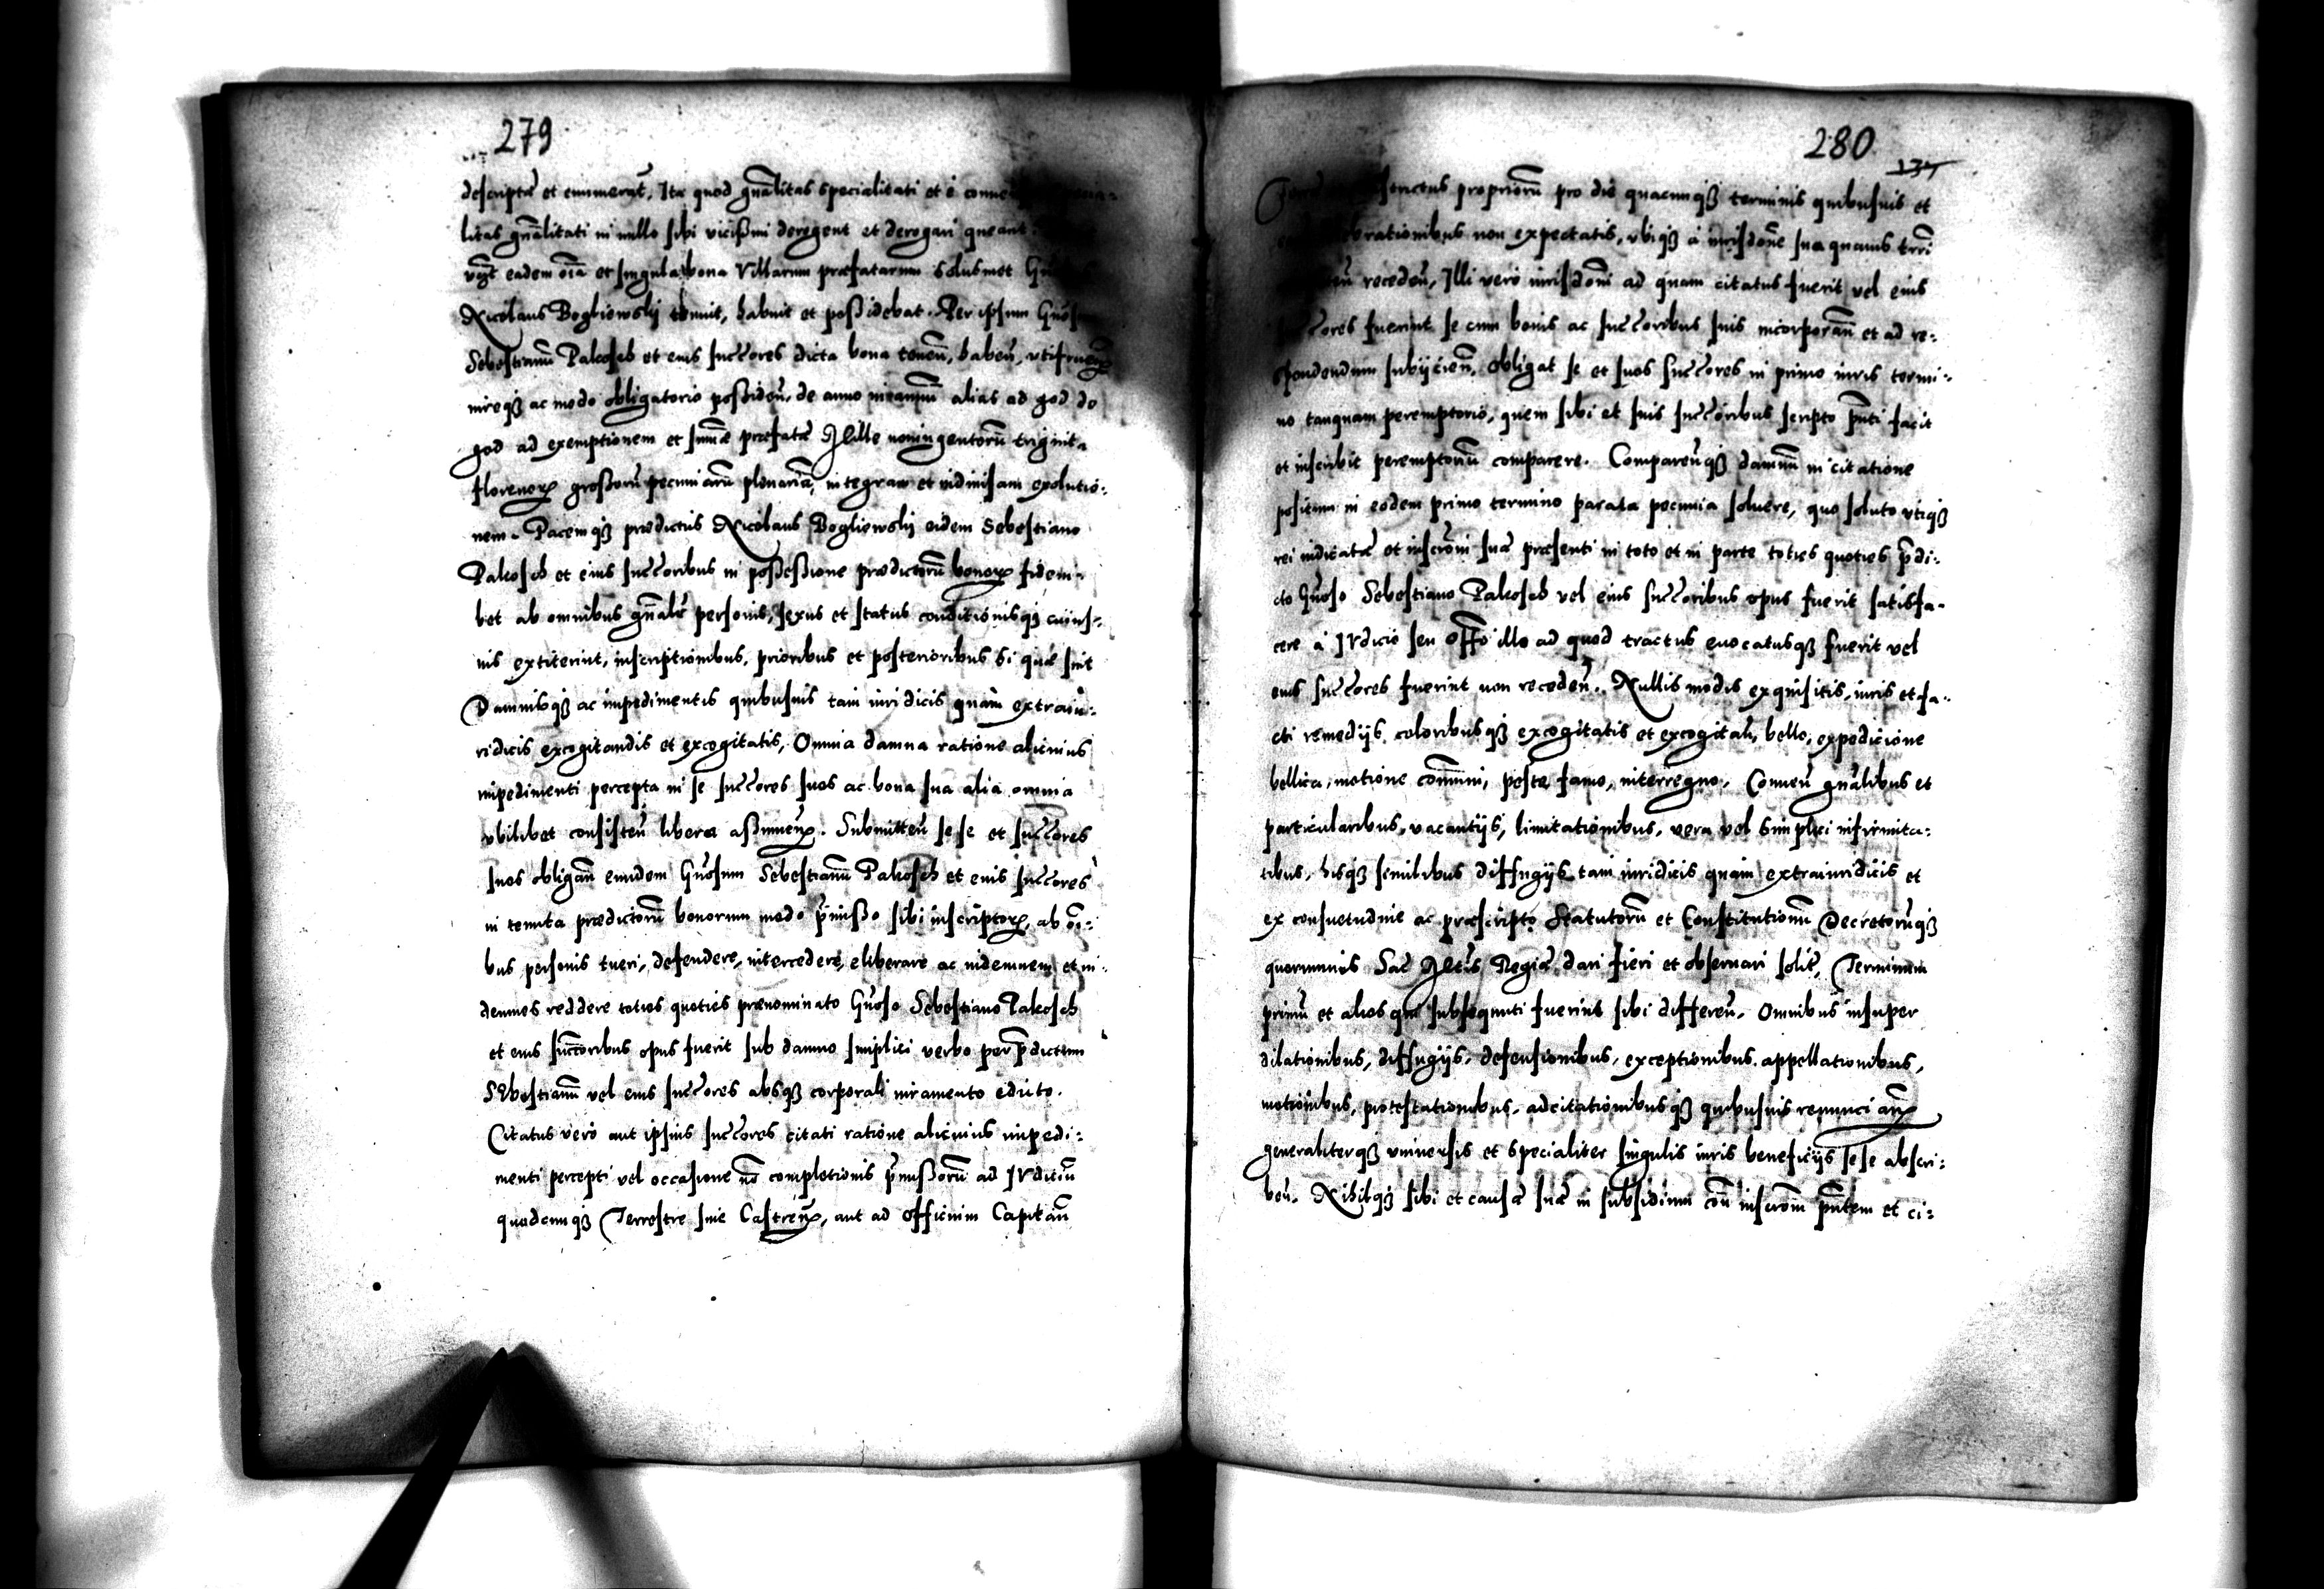 279
descriptæ et enumeratę. Ita quod gnãlitas specialitati et è conuer
litas gnãlitati in nullo sibi vicißim deregent et derogari queant
vt eadem oĩa et singula bona Villarum præfatarum solusmet
Nicolaus Bogliewskÿ tenuit, habuit et poßidebat. Per ipsum
Sebestianũ Pakosch et eius succores dicta bona tenẽn, habẽn, vtifruen
iureqꝫ ac modo obligatorio poßidẽn, de anno in annũ alias ad god do
god ad exemptionem et sum̃æ præfatæ Mille noningentorũ triginta
florenorꝝ großorũ pecuniarũ plenariã, integram et indiuisam exolutio-
nem. Pacemqꝫ prædictus Nicolaus Bogliewskÿ eidem Sebestiano
Pakosch et eius succoribus in poßeßione prædictorũ bonorꝝ fidem-
bet ab omnibus gnãlr personis, sexus et status conditionisqꝫ cuius-
uis extiterint, inscriptionibus, prioribus et posterioribus si quæ sint
Damnisqꝫ ac impedimentis quibusuis tam iuridicis quàm extraiu-
ridicis excogitandis et excogitatis, Omnia damna ratione alicuius
impedimenti percepta in se succores suos ac bona sua alia omnia
vbilibet consistẽn libera aßumenꝝ. Submittẽn se se et succores
suos obligãn eundem Gnõsum Sebestianũ Pakosch et eius succores
in tenuta prædictorũ bonorum modo p̃mißo sibi inscriptorꝝ, ab oĩ-
bus personis tueri, defendere, intercedere, eliberare ac indemnem et in-
demnes reddere toties quoties prænominato Gnõso Sebestiano Pakosch
et eius succoribus opus fuerit sub damno simplici verbo per p̃dictum
Sebestianũ vel eius succores absqꝫ corporali iuramento edicto.
Citatus verò aut ipsius succores citati ratione alicuius impedi-
menti percepti vel occasione nõ completionis p̃mißorũ ad Iudiciũ
quodcunqꝫ Terrestre siue Castrenꝝ, aut ad officium Capitãn
280
137
propriorũ pro die quacunqꝫ terminis quibusuis et
brationibus non expectatis, vbiqꝫ à iurisdõne sua quauis trri
recedẽn, Illi verò iurisdõni ad quam citatus fuerit vel eius
succores fuerint se cum bonis ac succoribus suis incorporãn et ad re-
spondendum subÿciẽn, obligat se et suos succores in primo iuris termi-
no tanquam peremptorio, quem sibi et suis succoribus scripto p̃nti facit
et inscribit peremptoriũ comparere. Comparẽnqꝫ damnũ in citatione
positum in eodem primo termino parata pecunia soluere, quo soluto vtiqꝫ
rei iudicatæ et inscrõni suæ præsenti in toto et in parte toties quoties p̃di-
cto Gnõso Sebestiano Pakosch vel eius succoribus opus fuerit satisfa-
cere à Iudicio seu offõ illo ad quod tractus euocatusqꝫ fuerit vel
eius succores fuerint non recedẽn. Nullis modis exquisitis, iuris et fa-
cti remedÿs, coloribusqꝫ excogitatis et excogitãn, bello, expeditione
bellica, motione com̃uni, peste, fame, interregno. Conuẽn gnãlibus et
particularibus, vacantÿs, limitationibus, vera vel simplici infirmita-
tibus, hisqꝫ similibus diffugÿs tam iuridicis quàm extraiuridicis et
ex consuetudine ac præscripto Statutorũ et Constitutionũ Decretorũqꝫ
quorumuis Sacr̃ Mtis Regiæ dari fieri et obseruari solit, Terminum
primũ et alios qui subsequuti fuerint sibi differẽn. Omnibus insuper
dilationibus, diffugÿs, defensionibus, exceptionibus, appellationibus,
motionibus, protestationibus, adcitationibusqꝫ quibusuis renunci anꝝ
generaliterqꝫ vniuersis et specialiter singulis iuris beneficÿs sese abscri-
bẽn. Nihilqꝫ sibi et causæ suæ in subsidium cõn inscrõm p̃ntem et ei-